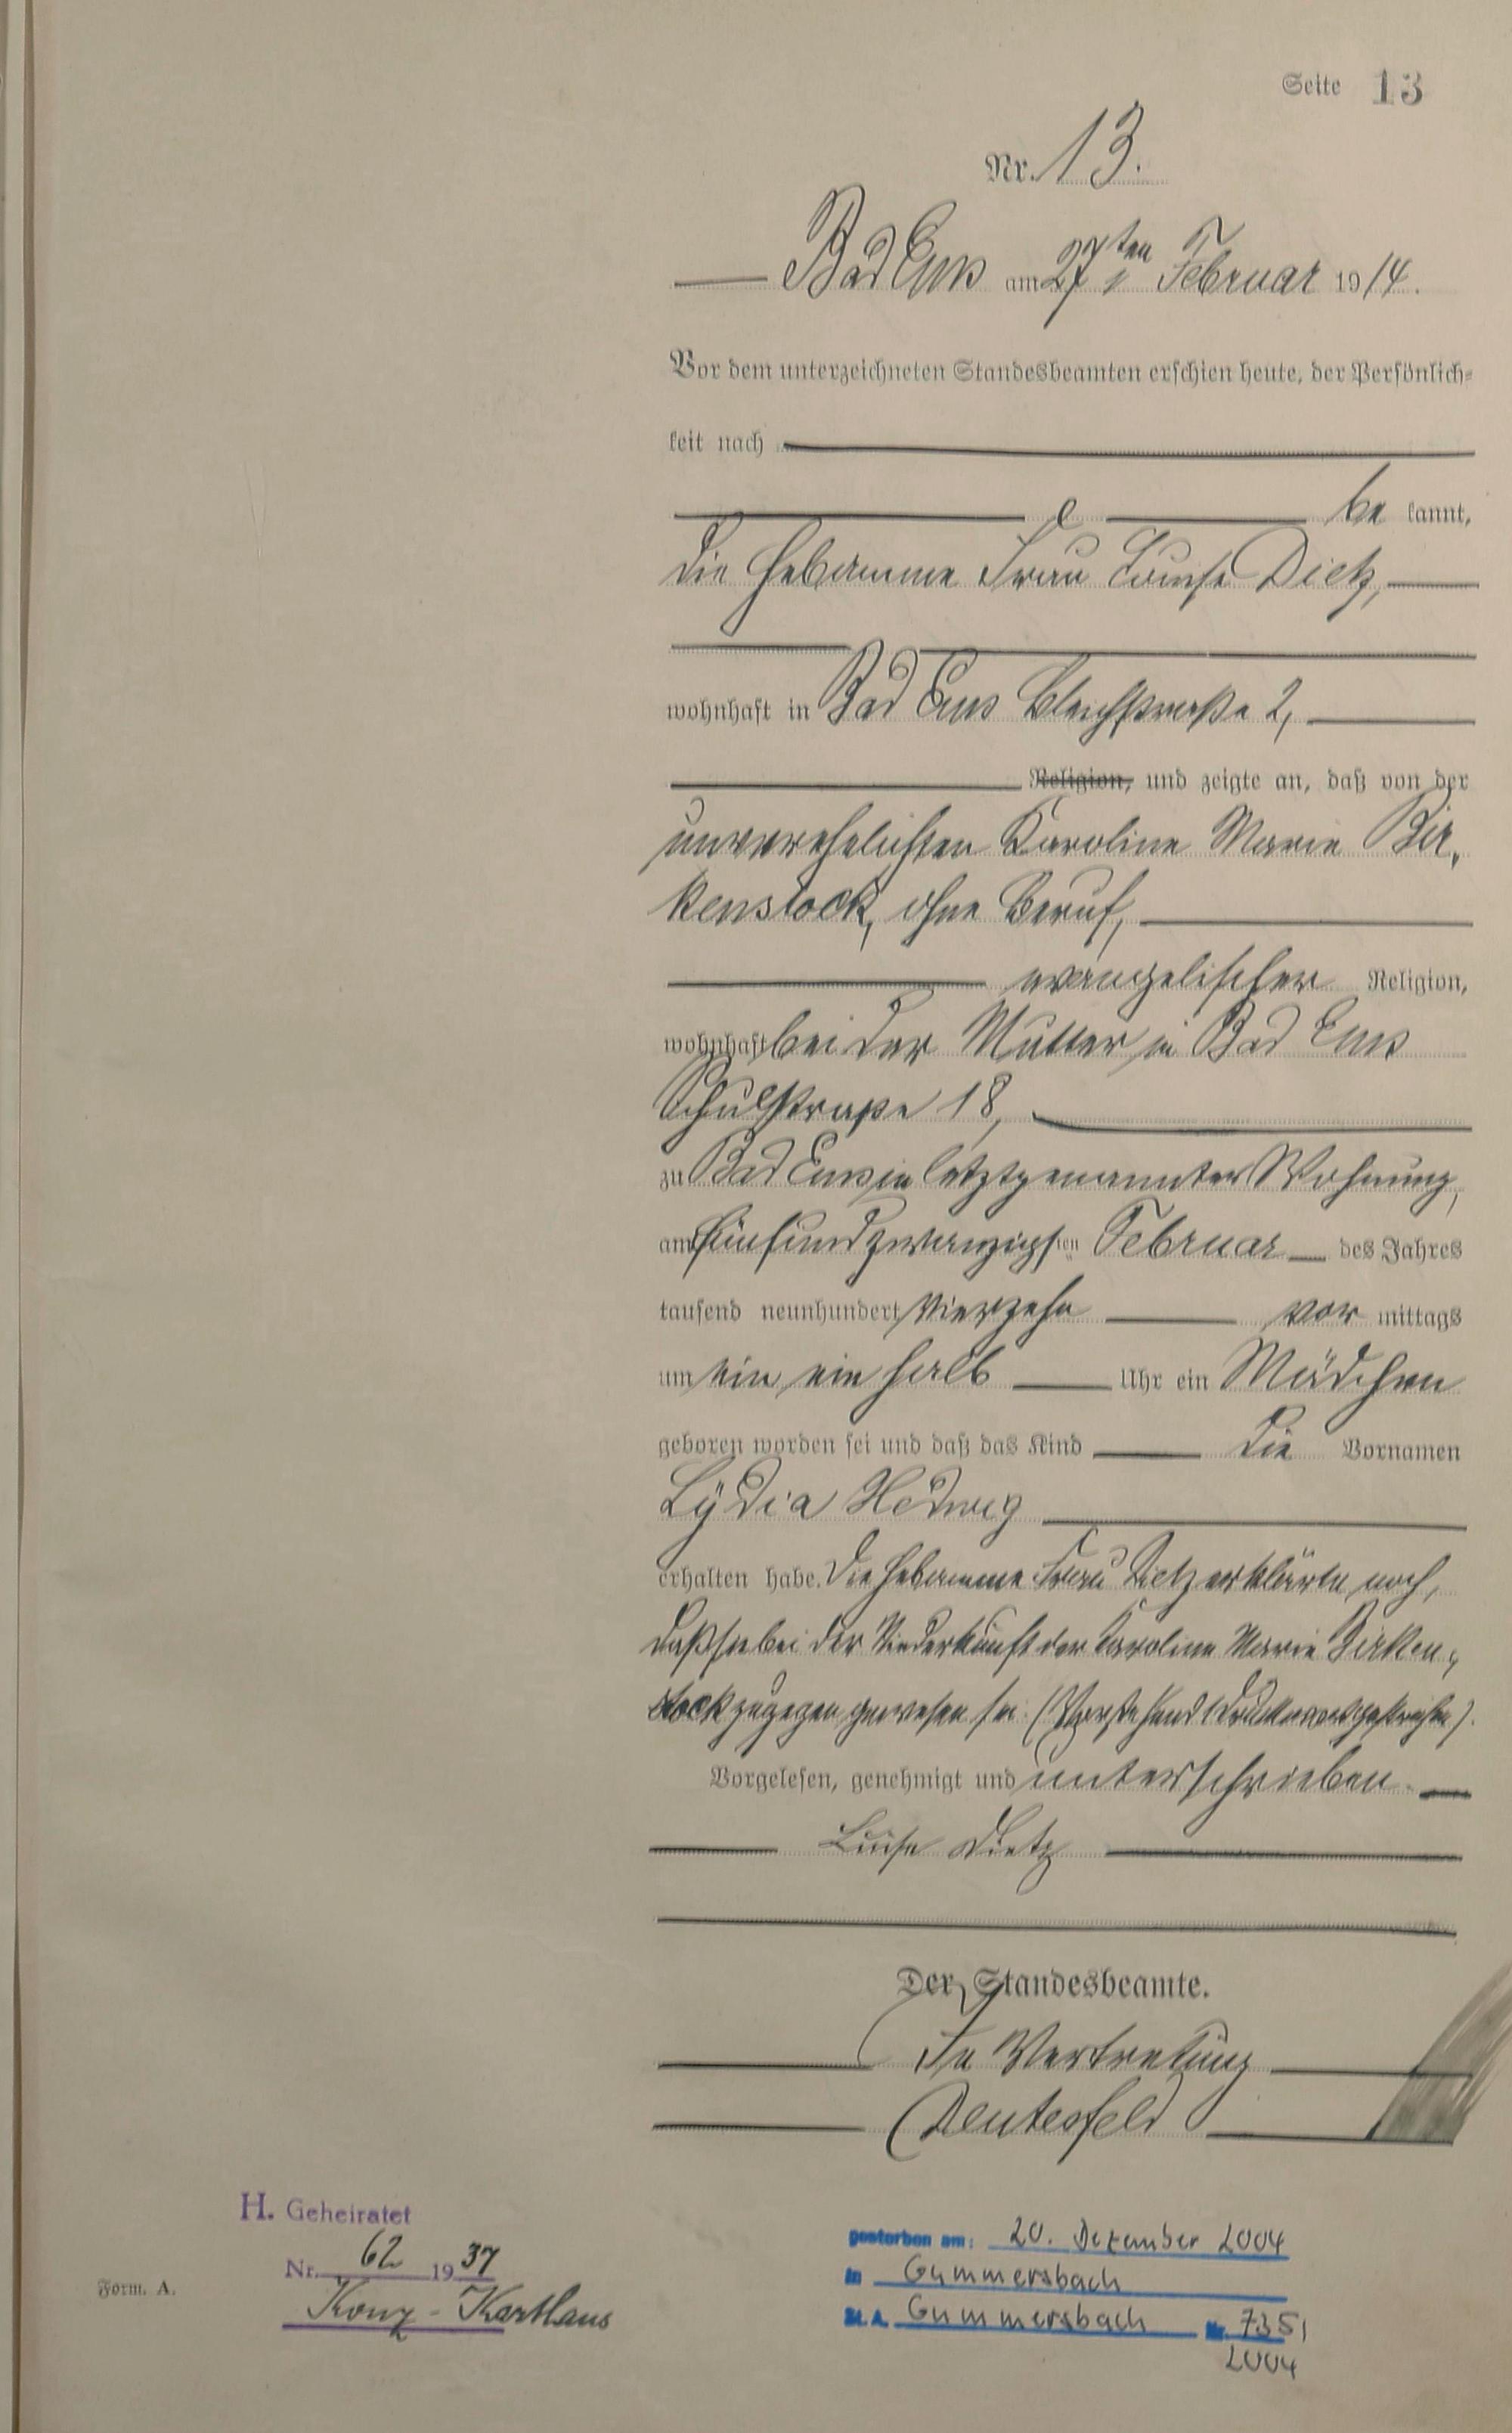 Seite 13
Nr. 13.
Bad Ems am 27ten Februar 1914.
Vor dem unterzeichneten Standesbeamten erschien heute, der Persönlich-
keit nach
be kannt,
die Hebamme Frau Luise Dietz,
wohnhaft in Bad Ems Bleichstraße 2,
Religion, und zeigte an, daß von der
unverehelichten Karoline Marie Bir-
kenstock, ohne Beruf,
evangelischer Religion,
wohnhaft bei der Mutter in Bad Ems
Schulstraße 18,
zu Bad Ems in letztgenannter Wohnung,
am fünfundzwanzigsten Februar des Jahres
tausend neunhundert vierzehn vor mittags
um ein ein halb Uhr ein Mädchen
geboren worden sei und daß das Kind die Vornamen
Lydia Hedwig
erhalten habe. Die Hebamme Frau Dietz erklärte noch,
daß sie bei der Niederkunft der Karoline Marie Birken-
stock zugegen gewesen sei. (Vorstehend 1 Druckwort gestrichen).
Vorgelesen, genehmigt und unterschrieben.
Luise Dietz
Der Standesbeamte.
In Vertretung
H. Geheiratet
Nr. 62 1937
Konz-Karthaus
Form. A.
gestorben am: 20. Dezember 2004
in Gummersbach
St. A. Gummersbach Nr. 735/
2004